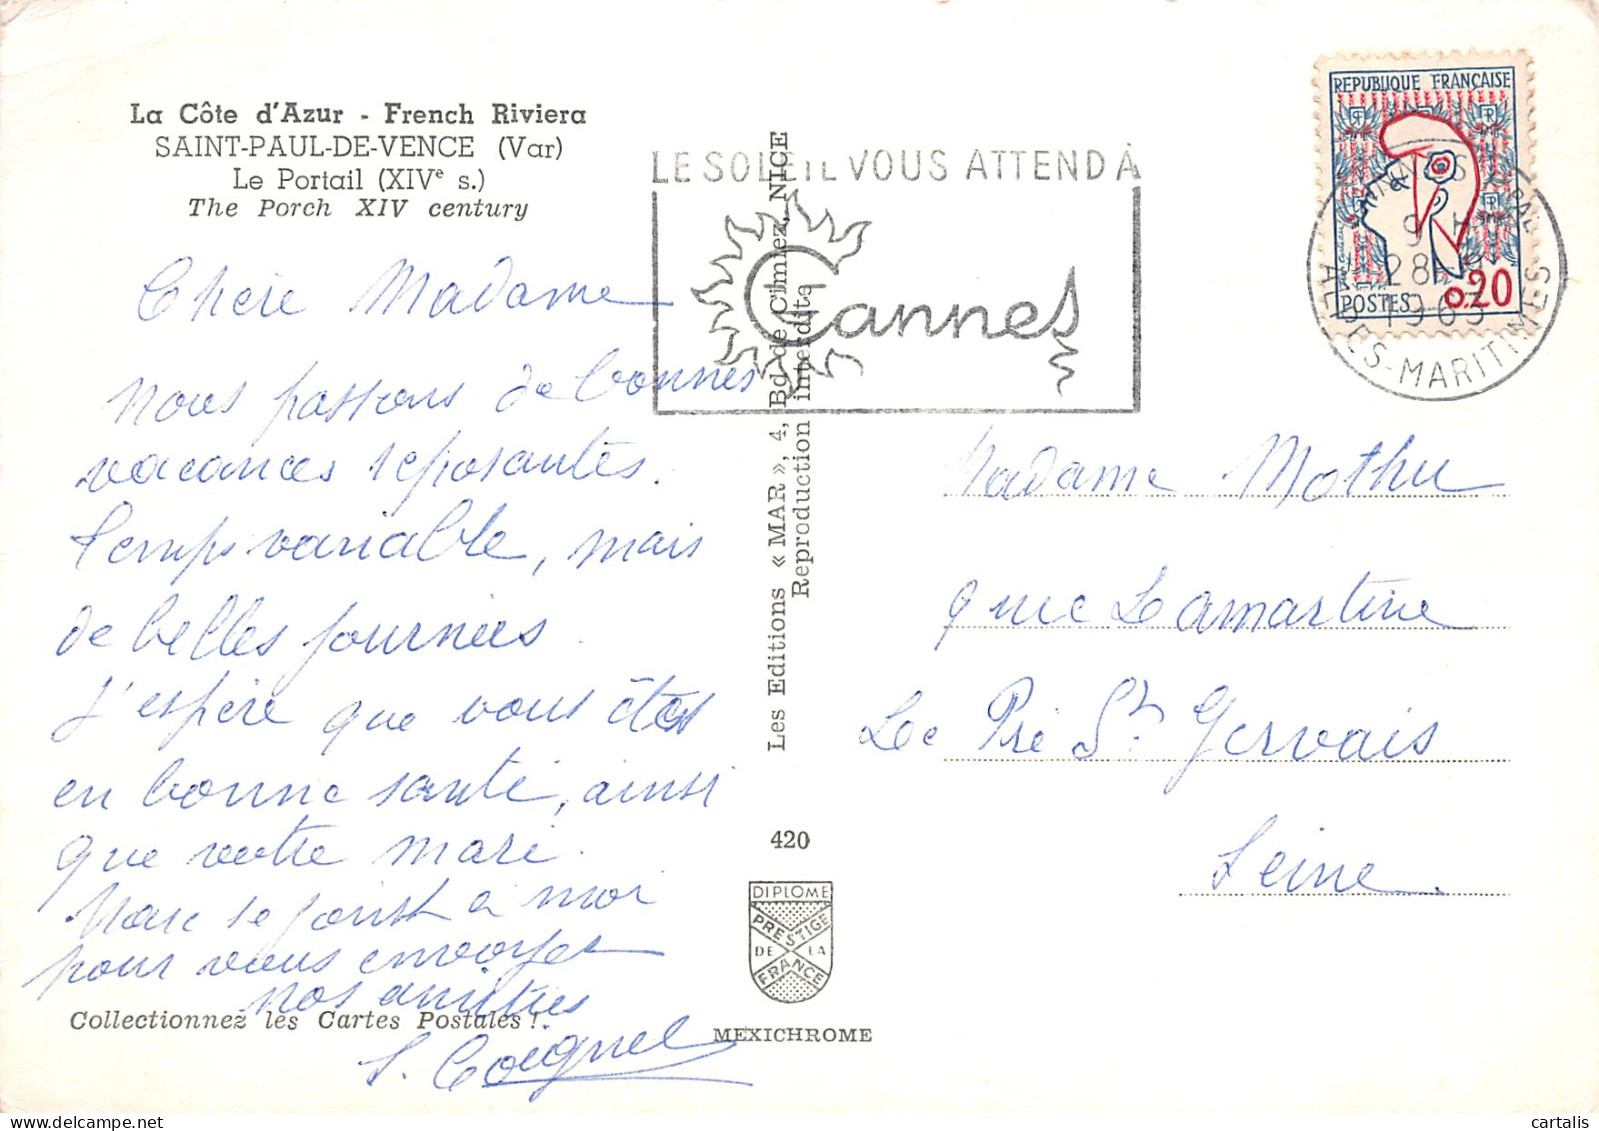 La Côte d'Azur - French Riviera
SAINT-PAUL-DE-VENCE (Var)
Le Portail (XIVe s.)
The Porch XIV century
Chère Madame
Nous passons de bonnes
vacances reposantes.
Temps variable, mais
de belles journées.
J'espère que vous êtes
en bonne santé, ainsi
que votre mari.
Marc se joint à moi
pour vous envoyer
nos amitiés
S. Coignel
Collectionnez les Cartes Postales !
Les Editions « MAR », 4, Bd de Cimiez, NICE
Reproduction interdite
420
DIPLOME
PRESTIGE
DE LA
FRANCE
MEXICHROME
LE SOLEIL VOUS ATTEND À
Cannes
REPUBLIQUE FRANÇAISE
POSTES 0,20
CANNES
9 H
28
1963
ALPES-MARITIMES
Madame Mothu
rue Lamartine
Le Pré St Gervais
Seine.
cartalis